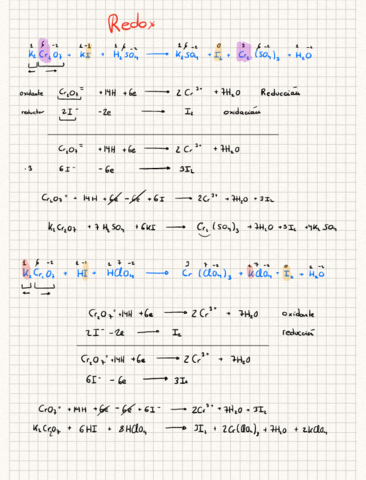 Redox
1 6 -2 1 -1 1 6 -2 1 6 -2 0 3 6 -2 1 -2
K₂Cr₂O₇ + KI + H₂SO₄ → K₂SO₄ + I₂ + Cr₂(SO₄)₃ + H₂O
oxidante Cr₂O₇⁼ +14H +6e → 2Cr³⁺ +7H₂O Reducción
reductor 2I⁻ -2e → I₂ oxidación
Cr₂O₇⁼ +14H +6e → 2Cr³⁺ +7H₂O
·3 6I⁻ -6e → 3I₂
Cr₂O₇⁼ + 14H + 6e - 6e + 6I → 2Cr³⁺ + 7H₂O + 3I₂
K₂Cr₂O₇ + 7H₂SO₄ + 6KI → Cr₂(SO₄)₃ + 7H₂O + 3I₂ + 4K₂SO₄
K₂Cr₂O₇ + HI + HClO₄ → Cr(ClO₄)₃ + KClO₄ + I₂ + H₂O
Cr₂O₇⁼ +14H +6e → 2Cr³⁺ + 7H₂O oxidante
2I⁻ -2e → I₂ reducción
Cr₂O₇⁼ +14H +6e → 2Cr³⁺ + 7H₂O
6I⁻ -6e → 3I₂
CrO₇⁼ + 14H + 6e - 6e + 6I⁻ → 2Cr³⁺ + 7H₂O + 3I₂
K₂Cr₂O₇ + 6HI + 8HClO₄ → 3I₂ + 2Cr(ClO₄)₃ + 7H₂O + 2KClO₄